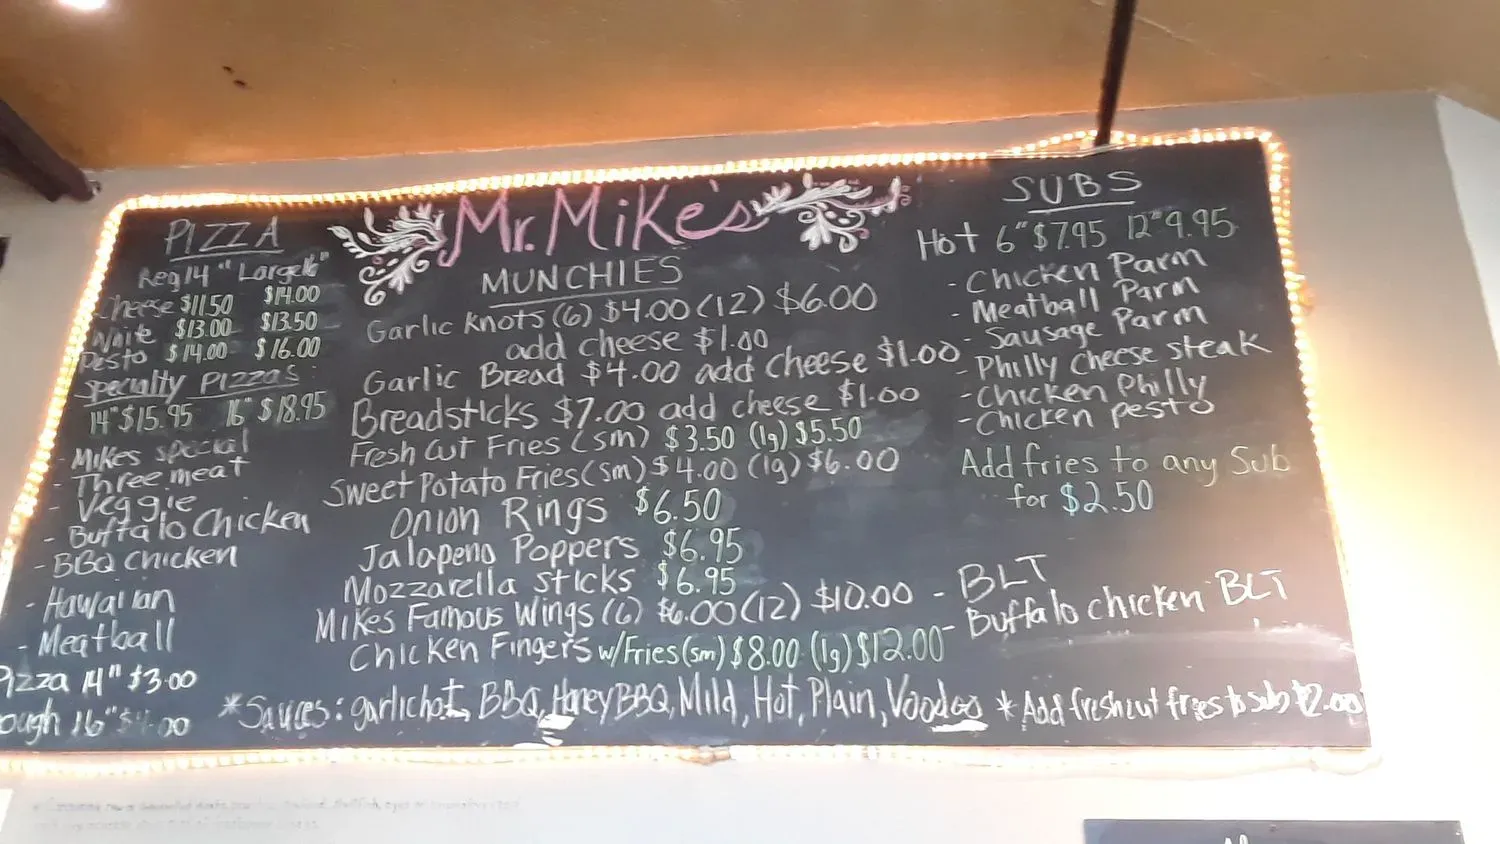 Mr. Mike's
PIZZA
Reg 14" Large 16"
Cheese $11.50 $14.00
White $13.00 $13.50
Pesto $14.00 $16.00
Specialty Pizzas
14" $15.95 16" $18.95
- Mikes special
- Three meat
- Veggie
- Buffalo Chicken
- BBQ chicken
- Hawaiian
- Meatball
Pizza 14" $3.00
ough 16" $4.00
MUNCHIES
Garlic Knots (6) $4.00 (12) $6.00
add cheese $1.00
Garlic Bread $4.00 add cheese $1.00
Breadsticks $7.00 add cheese $1.00
Fresh Cut Fries (sm) $3.50 (lg) $5.50
Sweet Potato Fries (sm) $4.00 (lg) $6.00
Onion Rings $6.50
Jalapeno Poppers $6.95
Mozzarella Sticks $6.95
Mikes Famous Wings (6) $6.00 (12) $10.00
Chicken Fingers w/Fries (sm) $8.00 (lg) $12.00
SUBS
Hot 6" $7.95 12" 9.95
- Chicken Parm
- Meatball Parm
- Sausage Parm
- Philly Cheese steak
- Chicken Philly
- Chicken pesto
Add fries to any Sub
for $2.50
- BLT
- Buffalo chicken BLT
*Sauces: garlic hot, BBQ, Honey BBQ, Mild, Hot, Plain, Voodoo *Add fresh cut fries to sub $2.00